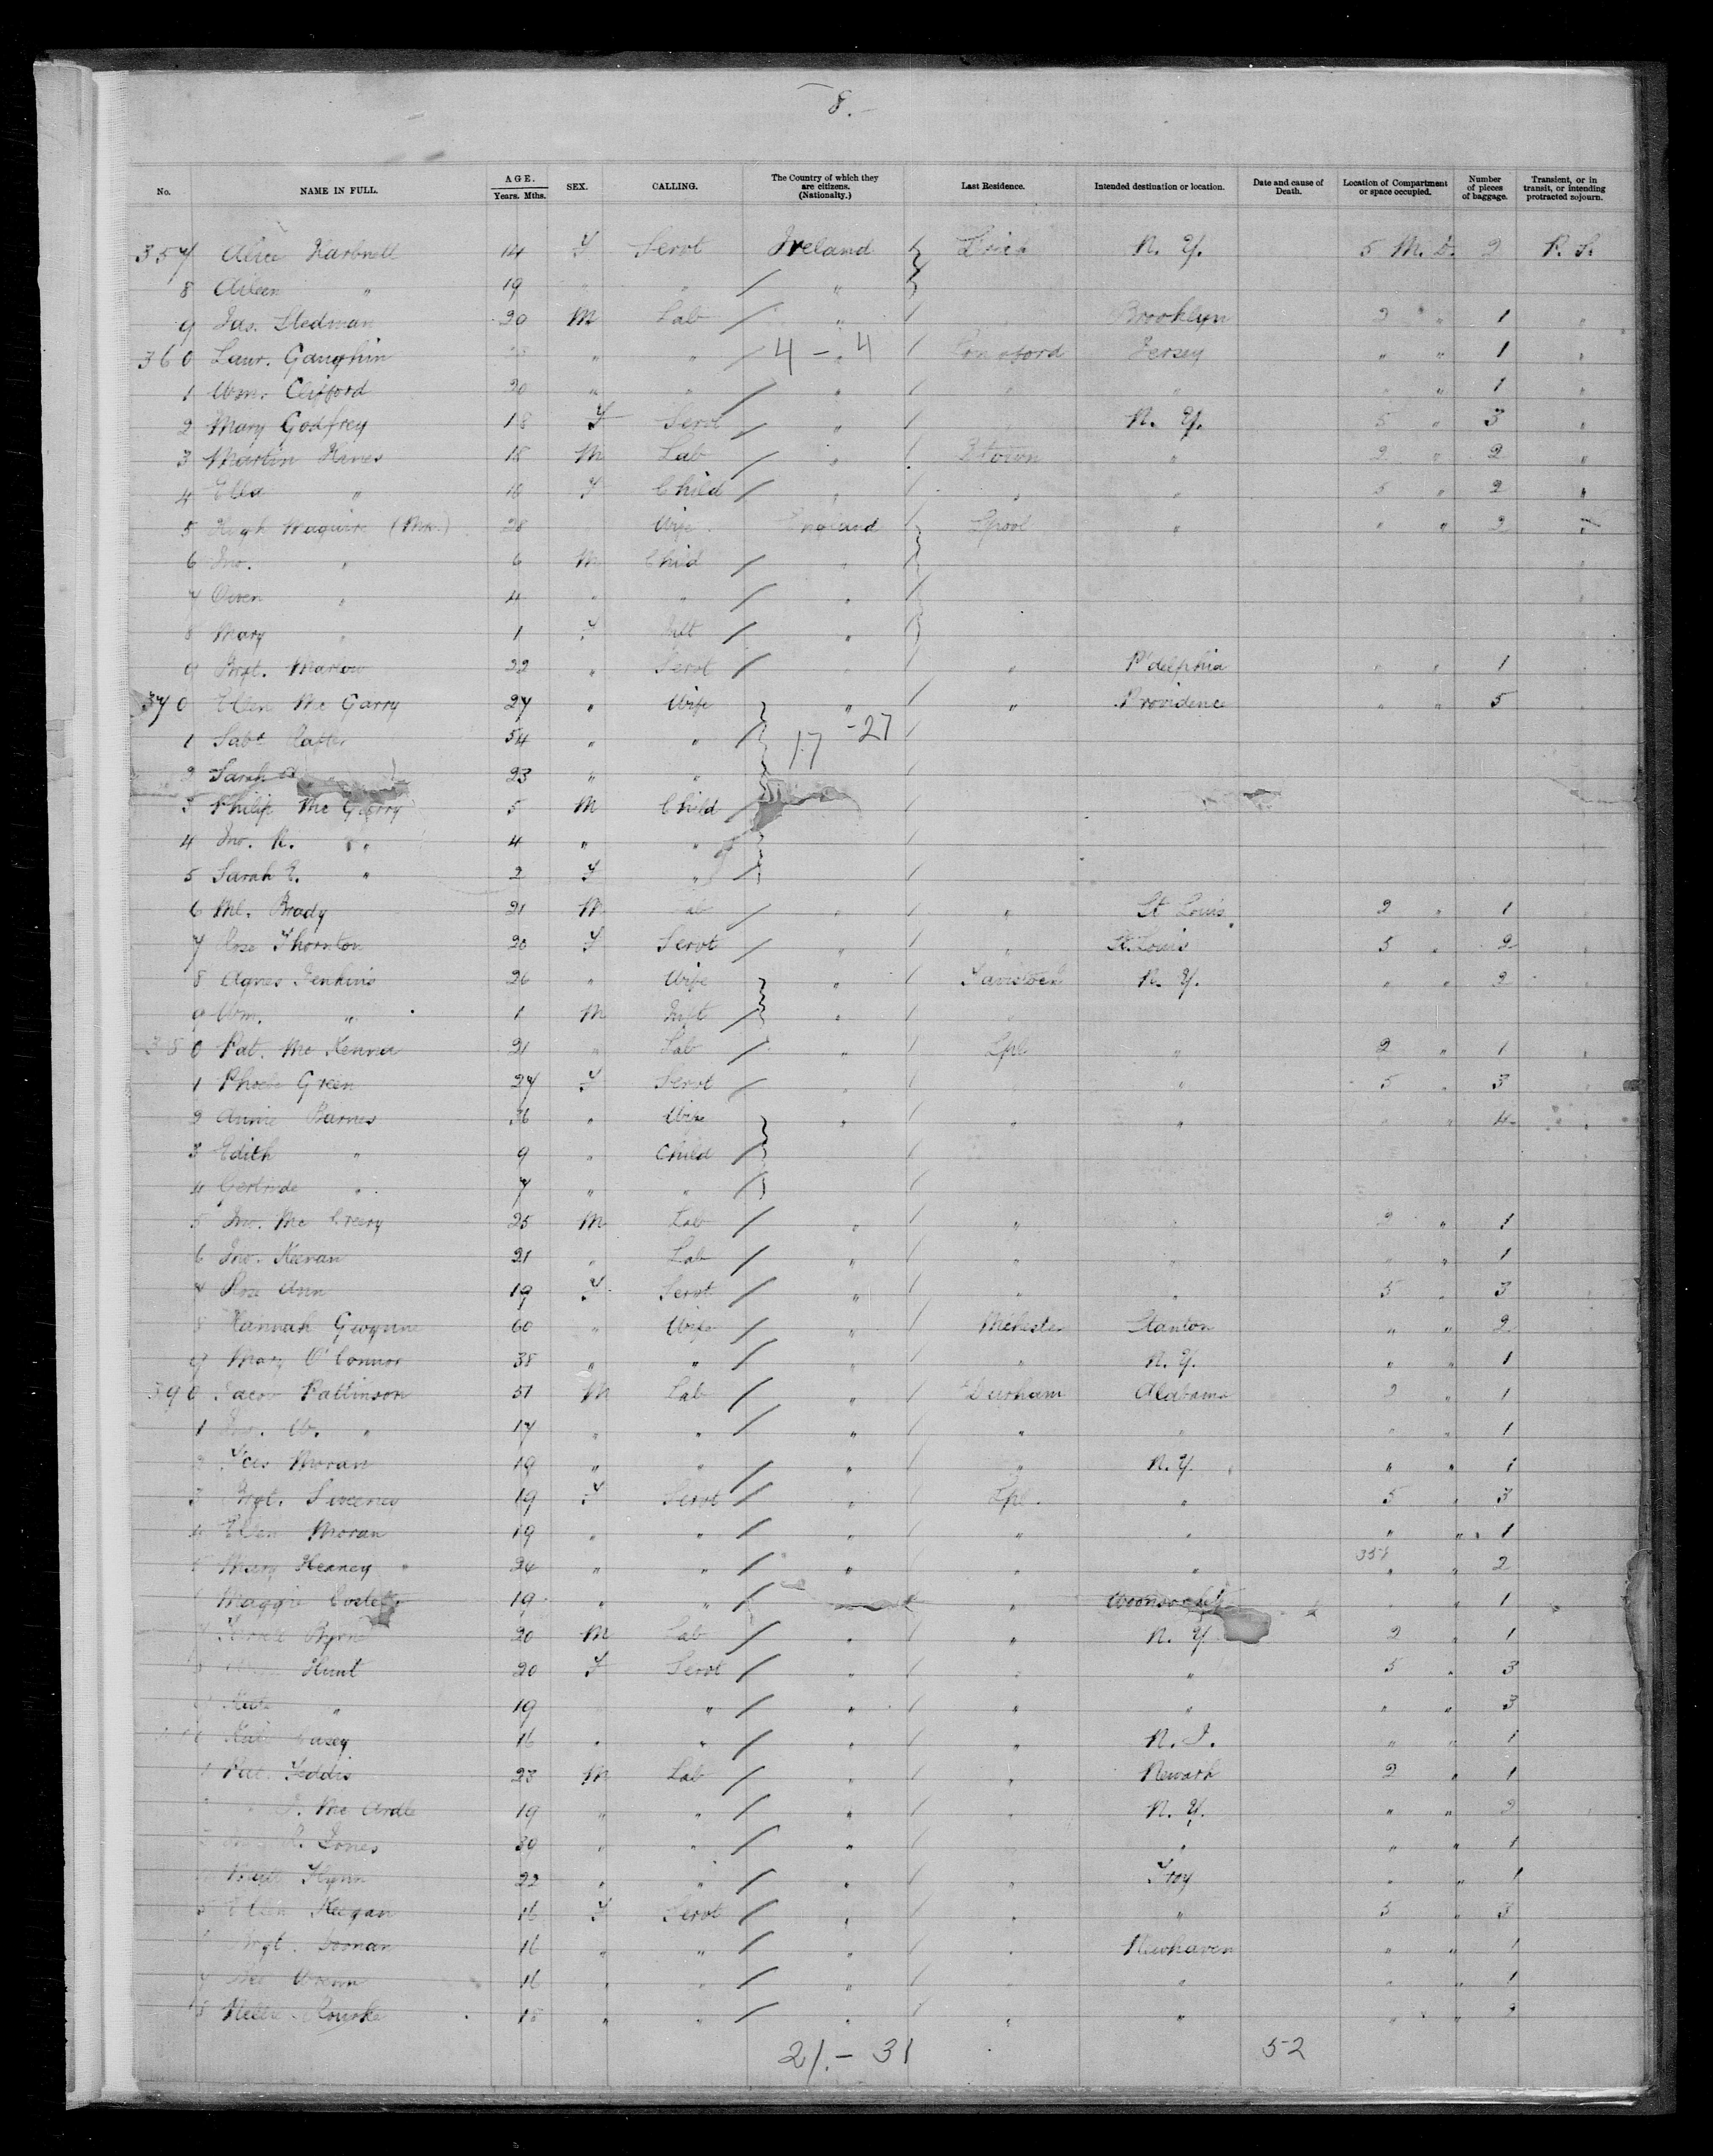 8.
No. NAME IN FULL. AGE. Years. Mths. SEX. CALLING. The Country of which they are citizens. (Nationalty.) Last Residence. Intended destination or location. Date and cause of Death. Location of Compartment or space occupied. Number of pieces of baggage. Transient, or in transit, or intending protracted sojourn.
357 Alice 14 F Servt Ireland N. Y. 5 M. D. 2 P. S.
8 Aileen " 19 " " "
9 Jas. Stedman 20 M Lab " Brooklyn 2 " 1 "
360 Laur. Gaughin " " 4 - 4 Longford Jersey " " 1 "
1 Wm. Clifford 20 " " " " " " 1 "
2 Mary Godfrey 18 F Servt " N. Y. 5 " 3 "
3 Martin Hines 15 M Lab " " 2 " 2 "
4 Ella " F Child " " " 5 " 2 "
5 Hugh Maguire (Mrs.) 28 " Wife England Lpool " " " 2 "
6 Jno. " 6 M Child " "
7 Owen " 4 " " "
8 Mary " 1 F Inft "
9 Brgt. Marlow 22 " Servt " " P'delphia " " 1
370 Ellen Mc Garry 27 " Wife " " Providence " " 5
1 54 " " 17 -27
2 Sarah 23 " "
3 Philip Mc Garry 5 M Child
4 Jno. " 4 " "
5 Sarah E. " 2 F "
6 Ml. Brady 21 M Lab " " St Louis 2 " 1
7 Rose Thornton 20 F Servt " " St. Louis 5 " 2
8 Agnes Jenkins 26 " Wife " N. Y. " "
9 Wm. " 1 M Inft "
380 Pat. Mc Kenna 21 " Lab " Lpl " 2 " 1
1 Phoebe Green 27 F Servt " " 5 " 3
2 Annie Barnes 36 " Wife " " " " " 4
3 Edith " 9 " Child
4 Gertrude " 7 " "
5 Jno. Mc Creery 25 M Lab " " " 2 " 1
6 Jno. Keevan 21 " Lab " " " " " 1
7 Rose Ann 19 F Servt " " " 5 " 3
8 Hannah Gwynne 60 " Wife " Mchester Stanton " " 2
9 Mary O'Connor 38 " " " " N. Y. " " 1
390 Jacob Pattinson 51 M Lab " Durham Alabama 2 " 1
1 Jno. W. " 17 " " " " " " " 1
2 Fcis Moran 19 " " " " N. Y. " " 1
3 Brgt. Sweeney 19 F Servt " Lpl. " 5 " 3
4 Ellen Moran 19 " " " " " " " 1
5 Mary Heaney 24 " " " " " 351 " " 2
6 Maggie 19 " " " Woonsocket " " 1
7 Byrne 20 M Lab " " N. Y. 2 " 1
8 Hunt 20 F Servt " " " 5 " 3
9 Kate " 19 " " " " " " 3
Kate Casey 16 " " " " N. J. " " 1
1 Pat. Feddis 23 M Lab " " Newark 2 " 1
J. Mc Ardle 19 " " " " N. Y. " " 2
3 R. Jones 39 " " " " " " " 1
Flynn 22 " " " " Troy " " 1
5 Ellen Keegan 16 F Servt " " " 5 " 3
Brgt. Noonan 16 " " " " Newhaven " " 1
7 16 " " " " " " " 1
8 Nellie Rourke 18 " " " " " " "
21. - 31 52